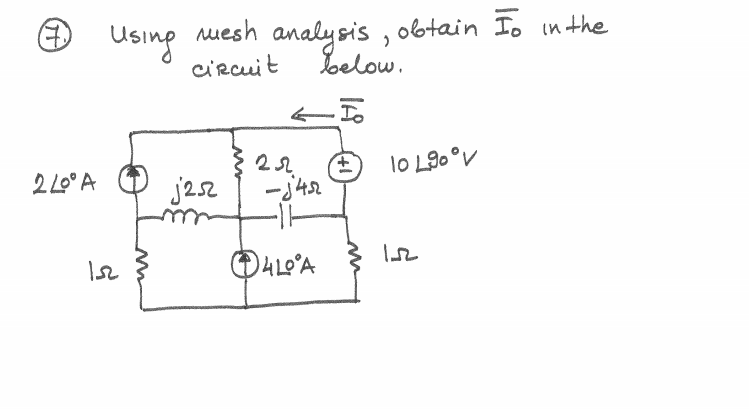 7. Using mesh analysis, obtain I̅o in the
circuit below.
← I̅o
2∠0° A
2Ω
+ −
10∠90° V
j2Ω
-j4Ω
1Ω
4∠0° A
1Ω